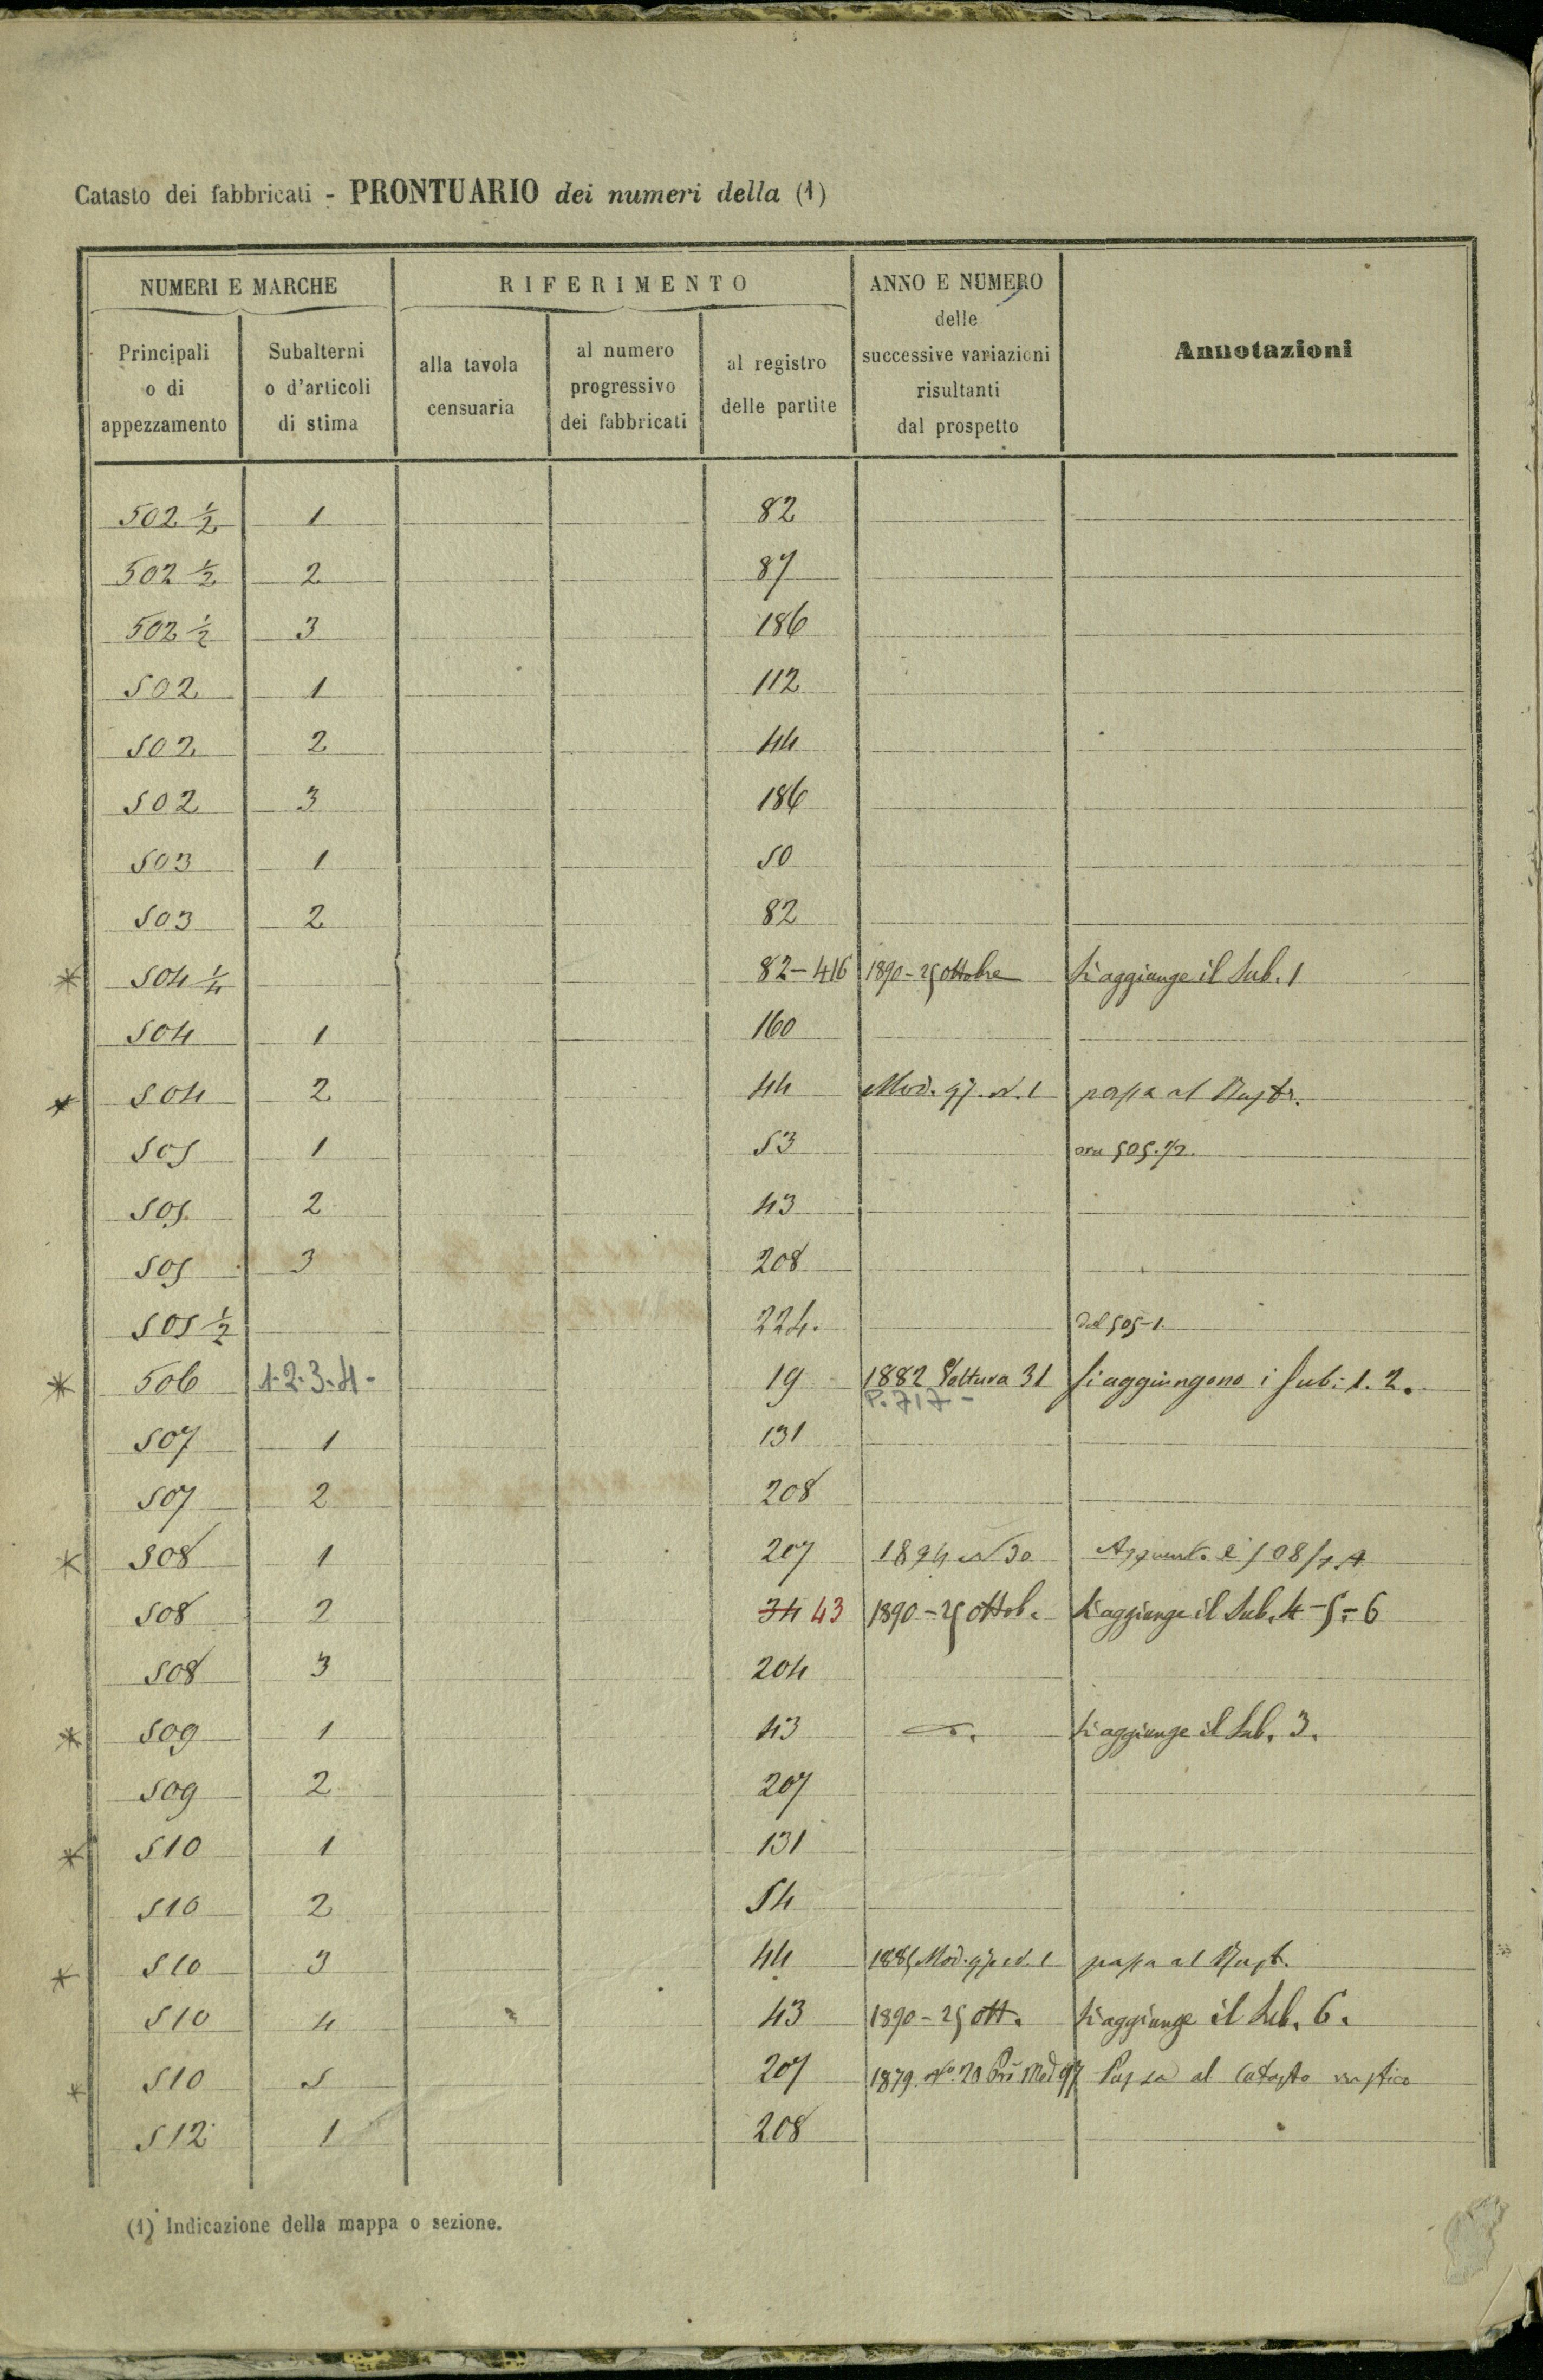 Catasto dei fabbricati - PRONTUARIO dei numeri della (1)
NUMERI E MARCHE
RIFERIMENTO
ANNO E NUMERO
delle
successive variazioni
risultanti
dal prospetto
Annotazioni
Principali
o di
appezzamento
Subalterni
o d'articoli
di stima
alla tavola
censuaria
al numero
progressivo
dei fabbricati
al registro
delle partite
502 1/2 1 82
502 1/2 2 87
502 1/2 3 186
502 1 112
502 2 44
502 3 186
503 1 50
503 2 82
* 504 1/4 82-416 1890-25 ottobre Si aggiunge il Sub. 1
504 1 160
* 504 2 44 Mod. 97. N. 1 passa al Rust.
505 1 53 ora 505.1/2.
505 2 43
505 3 208
505 1/2 224. dal 505-1.
* 506 1.2.3.4- 19 1882 Voltura 31 Si aggiungono i Sub: 1. 2.
P. 717-
507 1 131
507 2 208
* 508 1 207 1894 N 30
508 2 34 43 1890-25 ottob. Si aggiunge il Sub. 4-5-6
508 3 204
* 509 1 43 Si aggiunge il Sub. 3.
509 2 207
* 510 1 131
510 2 54
* 510 3 44 1885 Mod. 97 N. 1 passa al Rust.
510 4 43 1890-25 ott. Si aggiunge il Sub. 6.
* 510 5 207 1879. N°. 20 Mod 97 Passa al Catasto rustico
512 1 208
(1) Indicazione della mappa o sezione.